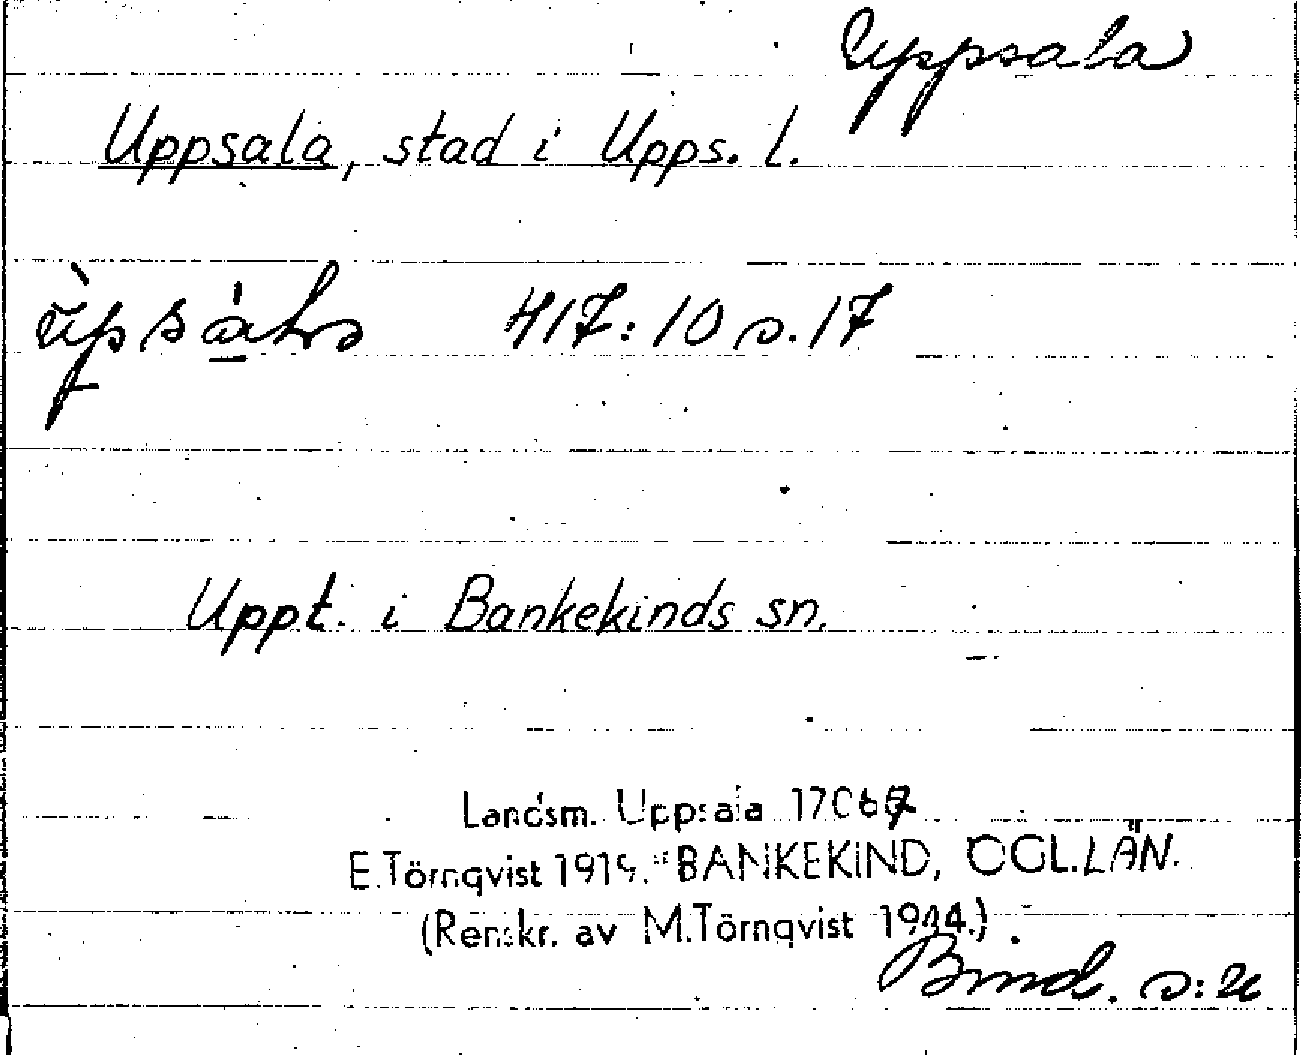 Uppsala
Uppsala, stad i Upps. l.
417:10 s. 17
Uppt. i Bankekinds sn.
Landsm. Uppsala
E. Törnqvist 1919. BANKEKIND, ÖGL. LÄN.
(Renskr. av M. Törnqvist 1944.)